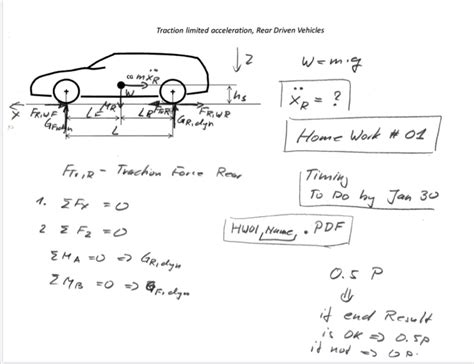 Traction limited acceleration, Rear Driven Vehicles
z
W = m·g
m ẍR
W
hs
ẍR = ?
x
FR,WF
LF
LR
FR,WR
GF,dyn
GR,dyn
L
Home Work # 01
FTr,R - Traction Force Rear
Timing
To Do by Jan 30
1. ΣFx = 0
2 ΣFz = 0
HW01_Name_.PDF
ΣMA = 0 => GR,dyn
ΣMB = 0 => GF,dyn
0.5 P
⇓
if end Result
is OK => 0.5P
if not => 0P.